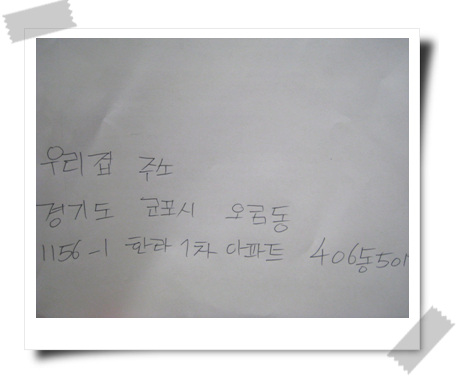 우리 접 주소
경기도 군포시 오금동
1156-1 한라 1차 아파트 406동 501